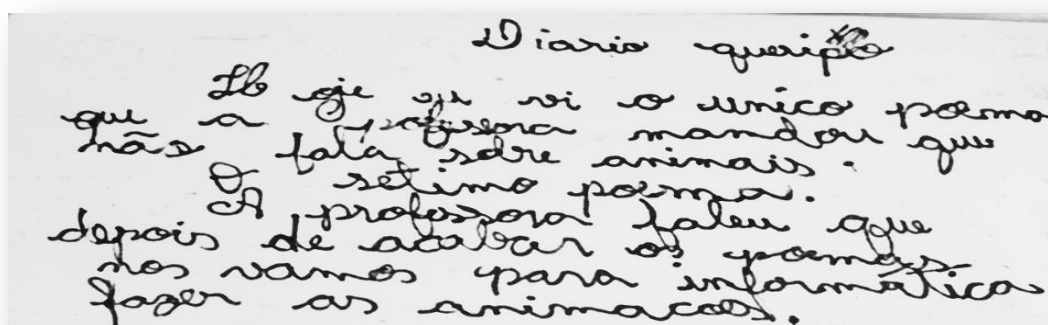 Diario querido
Hoje eu vi o unico poema
que a professora mandou que
não fala sobre animais.
O setimo poema.
A professora falou que
depois de acabar os poemas
nos vamos para informática
fazer as animacoes.